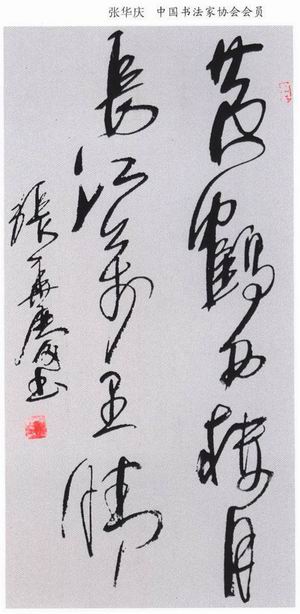 张华庆 中国书法家协会会员
黄鹤西楼月
長江萬里情
張華慶書